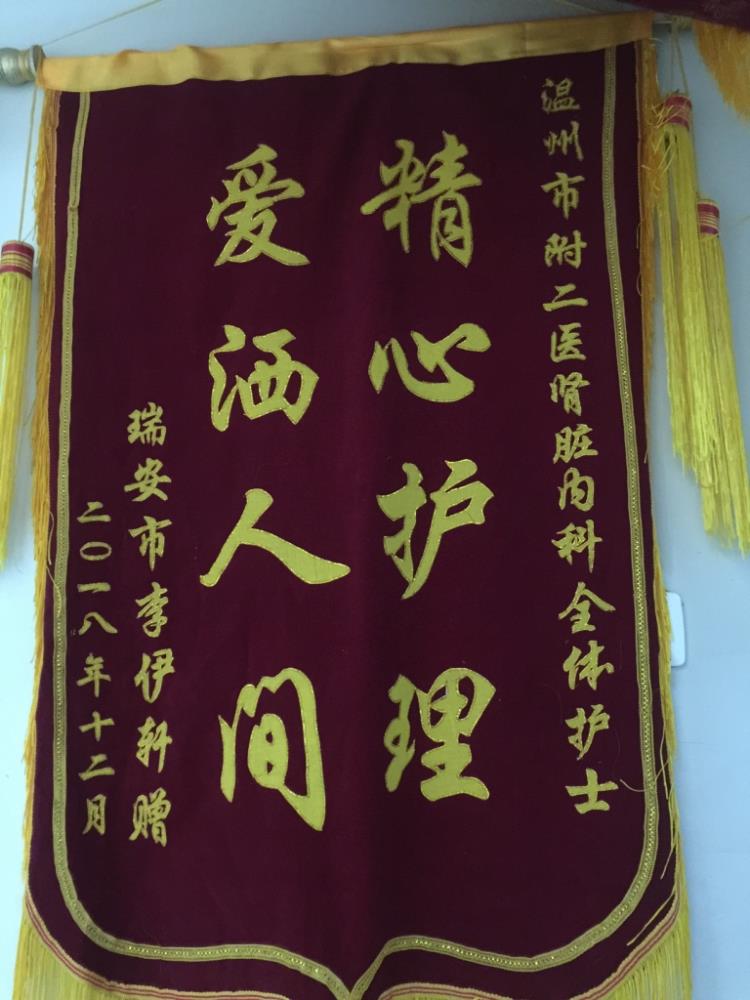 温州市附二医肾脏内科全体护士
精心护理
爱洒人间
瑞安市李伊轩赠
二〇一八年十二月